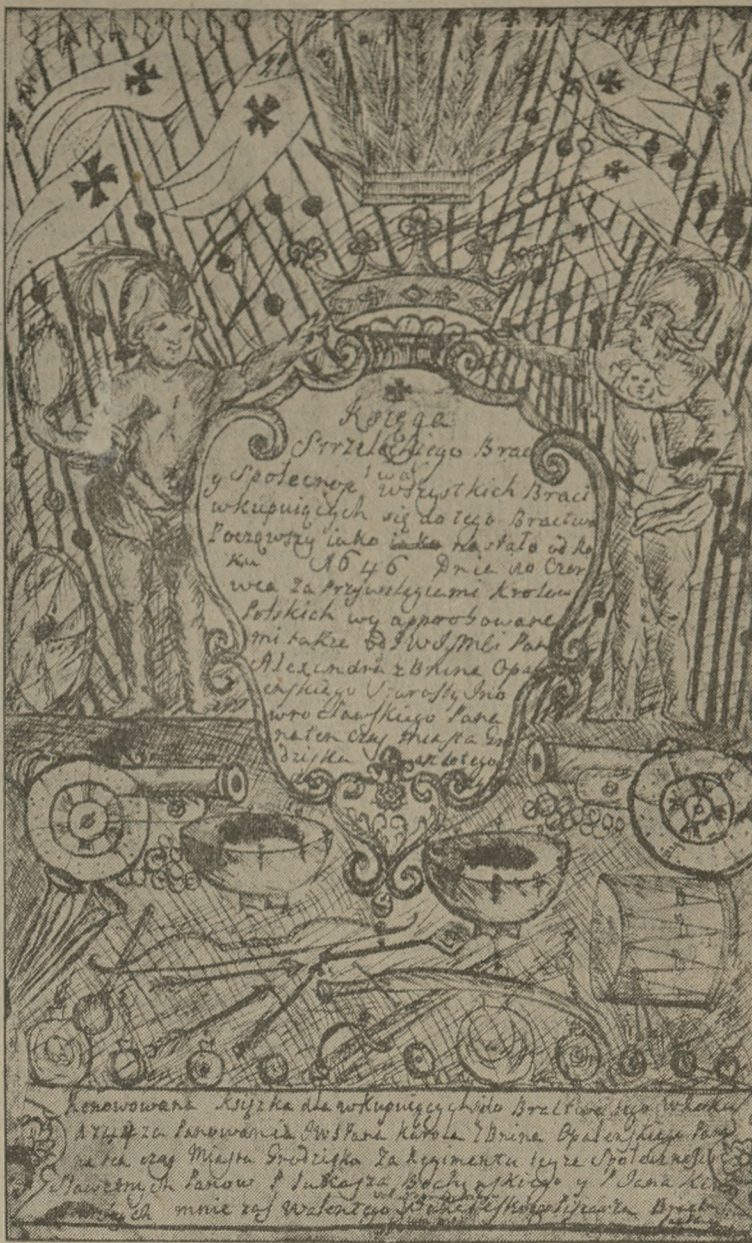 Księga
Strzeleckiego Brac
y Społecznoś wszystkich Braci
wkupuiących się do tego Bractwa
Począwszy iako nastało od Ro
ku 1646 Dnia 10 Czer
wca za Przywilegiami Krolow
Polskich wy approbowane
mi także od Pan
Alexandra z Bnina Opa
leńskiego Starosty Ino
wrocławskiego Pana
naten czas Miasta Gro
dziska
Renowowana Książka dla wkupuiących do Bractwa tego w Roku
za Panowania Pana Karola z Bnina Opaleńskiego Pana
na ten czas Miasta Grodziska za Regimentu teyze Społeczności
Sławetnych Panow P Łukasza y P Jana
mnie zaś Walentego Pisarza